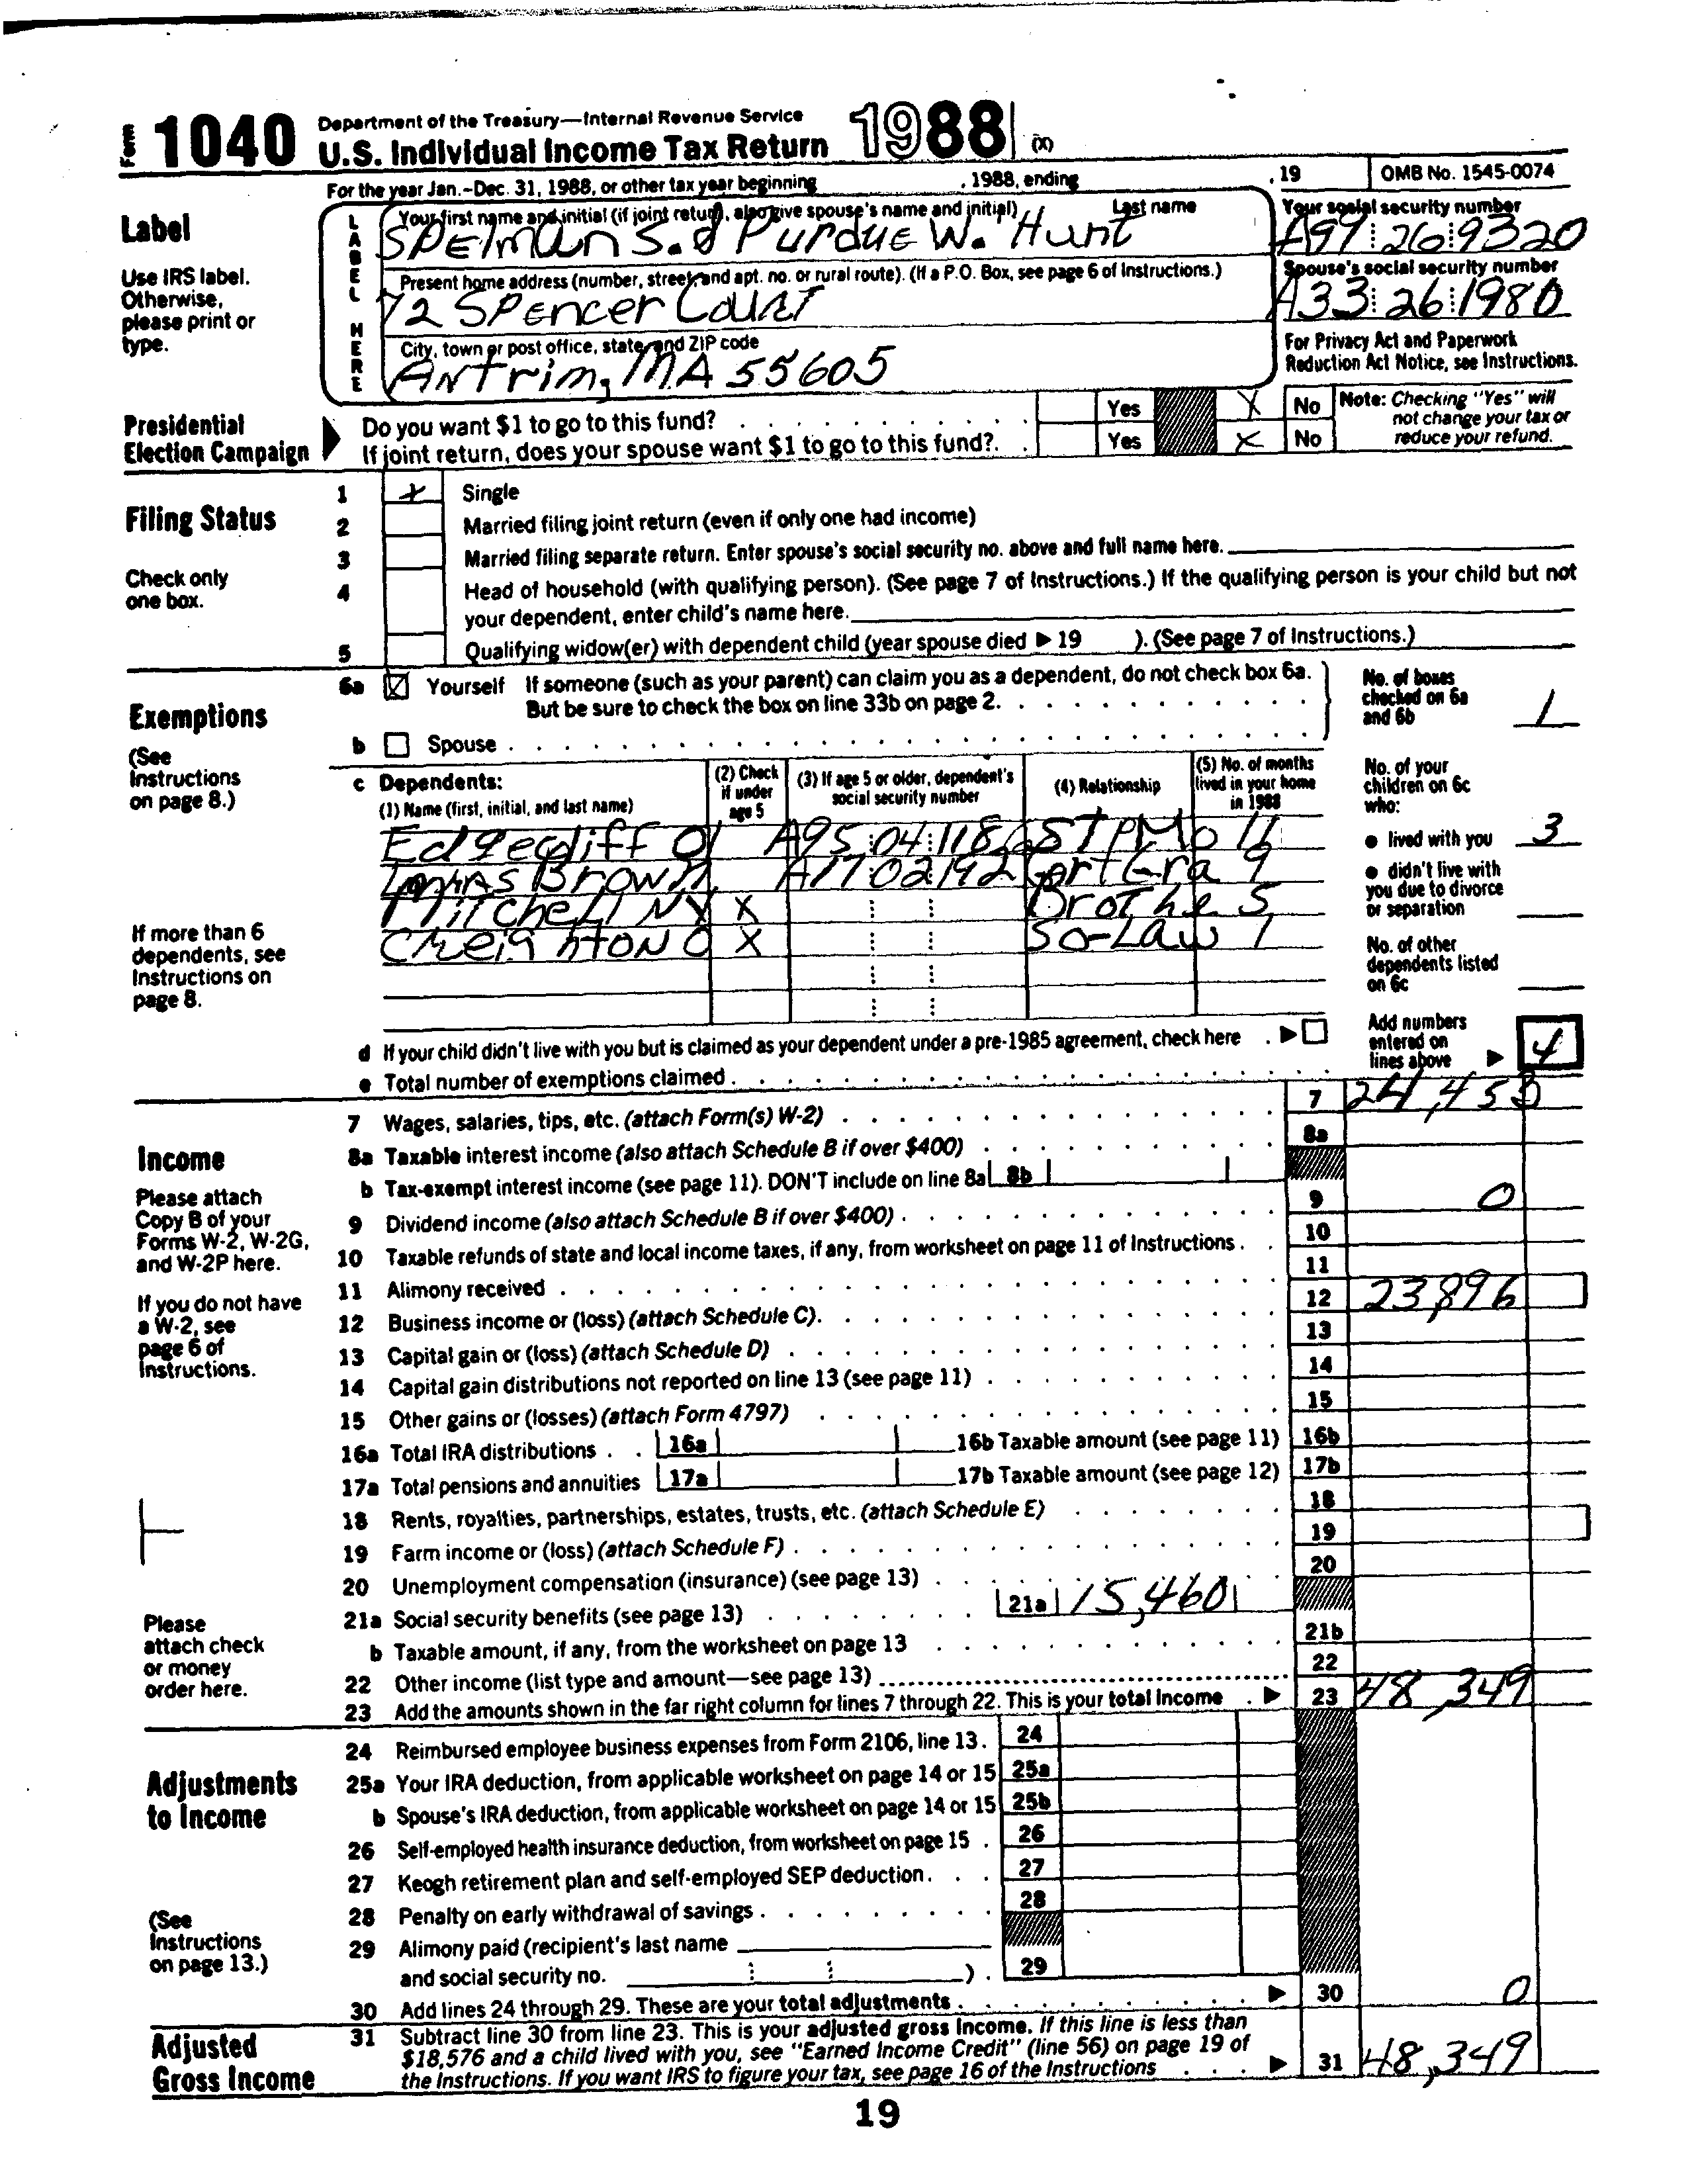 Form 1040 Department of the Treasury—Internal Revenue Service
U.S. Individual Income Tax Return 1988 (X)
For the year Jan.-Dec. 31, 1988, or other tax year beginning , 1988, ending , 19 OMB No. 1545-0074
Label
Use IRS label. Otherwise, please print or type.
LABEL HERE
Your first name and initial (if joint return, also give spouse's name and initial) Last name
SPElman S. & Purdue W. Hunt
Your social security number
A97 26 9320
Present home address (number, street, and apt. no. or rural route). (If a P.O. Box, see page 6 of Instructions.)
72 SPENCER Court
Spouse's social security number
A33 26 1980
City, town or post office, state, and ZIP code
Antrim, MA 55605
For Privacy Act and Paperwork
Reduction Act Notice, see Instructions.
Presidential
Election Campaign
Do you want $1 to go to this fund? Yes X No
If joint return, does your spouse want $1 to go to this fund?. Yes X No
Note: Checking "Yes" will
not change your tax or
reduce your refund.
Filing Status
Check only
one box.
1 X Single
2 Married filing joint return (even if only one had income)
3 Married filing separate return. Enter spouse's social security no. above and full name here.
4 Head of household (with qualifying person). (See page 7 of Instructions.) If the qualifying person is your child but not
your dependent, enter child's name here.
5 Qualifying widow(er) with dependent child (year spouse died ▶ 19 ). (See page 7 of Instructions.)
Exemptions
(See
Instructions
on page 8.)
6a X Yourself If someone (such as your parent) can claim you as a dependent, do not check box 6a.
But be sure to check the box on line 33b on page 2.
b Spouse
No. of boxes
checked on 6a
and 6b 1
c Dependents:
(1) Name (first, initial, and last name)
(2) Check
if under
age 5
(3) If age 5 or older, dependent's
social security number
(4) Relationship
(5) No. of months
lived in your home
in 1988
Edgecliff Ol A95 04 1186 STPMo 11
Brown A17 02 192 9
Mitchell NY X Brothe 5
Creighton C X So-Law 1
If more than 6
dependents, see
Instructions on
page 8.
No. of your
children on 6c
who:
● lived with you 3
● didn't live with
you due to divorce
or separation
No. of other
dependents listed
on 6c
d If your child didn't live with you but is claimed as your dependent under a pre-1985 agreement, check here ▶
e Total number of exemptions claimed
Add numbers
entered on
lines above ▶ 4
Income
Please attach
Copy B of your
Forms W-2, W-2G,
and W-2P here.
If you do not have
a W-2, see
page 6 of
Instructions.
Please
attach check
or money
order here.
7 Wages, salaries, tips, etc. (attach Form(s) W-2) 7 24,453
8a Taxable interest income (also attach Schedule B if over $400) 8a
b Tax-exempt interest income (see page 11). DON'T include on line 8a 8b
9 Dividend income (also attach Schedule B if over $400) 9 0
10 Taxable refunds of state and local income taxes, if any, from worksheet on page 11 of Instructions. 10
11 Alimony received 11
12 Business income or (loss) (attach Schedule C). 12 23,896
13 Capital gain or (loss) (attach Schedule D) 13
14 Capital gain distributions not reported on line 13 (see page 11) 14
15 Other gains or (losses) (attach Form 4797) 15
16a Total IRA distributions 16a 16b Taxable amount (see page 11) 16b
17a Total pensions and annuities 17a 17b Taxable amount (see page 12) 17b
18 Rents, royalties, partnerships, estates, trusts, etc. (attach Schedule E) 18
19 Farm income or (loss) (attach Schedule F) 19
20 Unemployment compensation (insurance) (see page 13) 20
21a Social security benefits (see page 13) 21a 15,460
b Taxable amount, if any, from the worksheet on page 13 21b
22 Other income (list type and amount—see page 13) 22
23 Add the amounts shown in the far right column for lines 7 through 22. This is your total income ▶ 23 48,349
Adjustments
to Income
(See
Instructions
on page 13.)
24 Reimbursed employee business expenses from Form 2106, line 13. 24
25a Your IRA deduction, from applicable worksheet on page 14 or 15 25a
b Spouse's IRA deduction, from applicable worksheet on page 14 or 15 25b
26 Self-employed health insurance deduction, from worksheet on page 15 26
27 Keogh retirement plan and self-employed SEP deduction. 27
28 Penalty on early withdrawal of savings 28
29 Alimony paid (recipient's last name
and social security no. ) 29
30 Add lines 24 through 29. These are your total adjustments ▶ 30 0
Adjusted
Gross Income
31 Subtract line 30 from line 23. This is your adjusted gross income. If this line is less than
$18,576 and a child lived with you, see "Earned Income Credit" (line 56) on page 19 of
the Instructions. If you want IRS to figure your tax, see page 16 of the Instructions ▶ 31 48,349
19